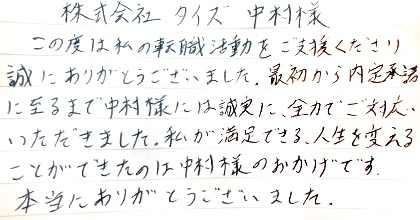 株式会社 タイズ 中村様
この度は私の転職活動をご支援くださり
誠にありがとうございました。最初から内定承諾
に至るまで中村様には誠実に、全力でご対応
いただきました。私が満足できる、人生を変える
ことができたのは中村様のおかげです。
本当にありがとうございました。